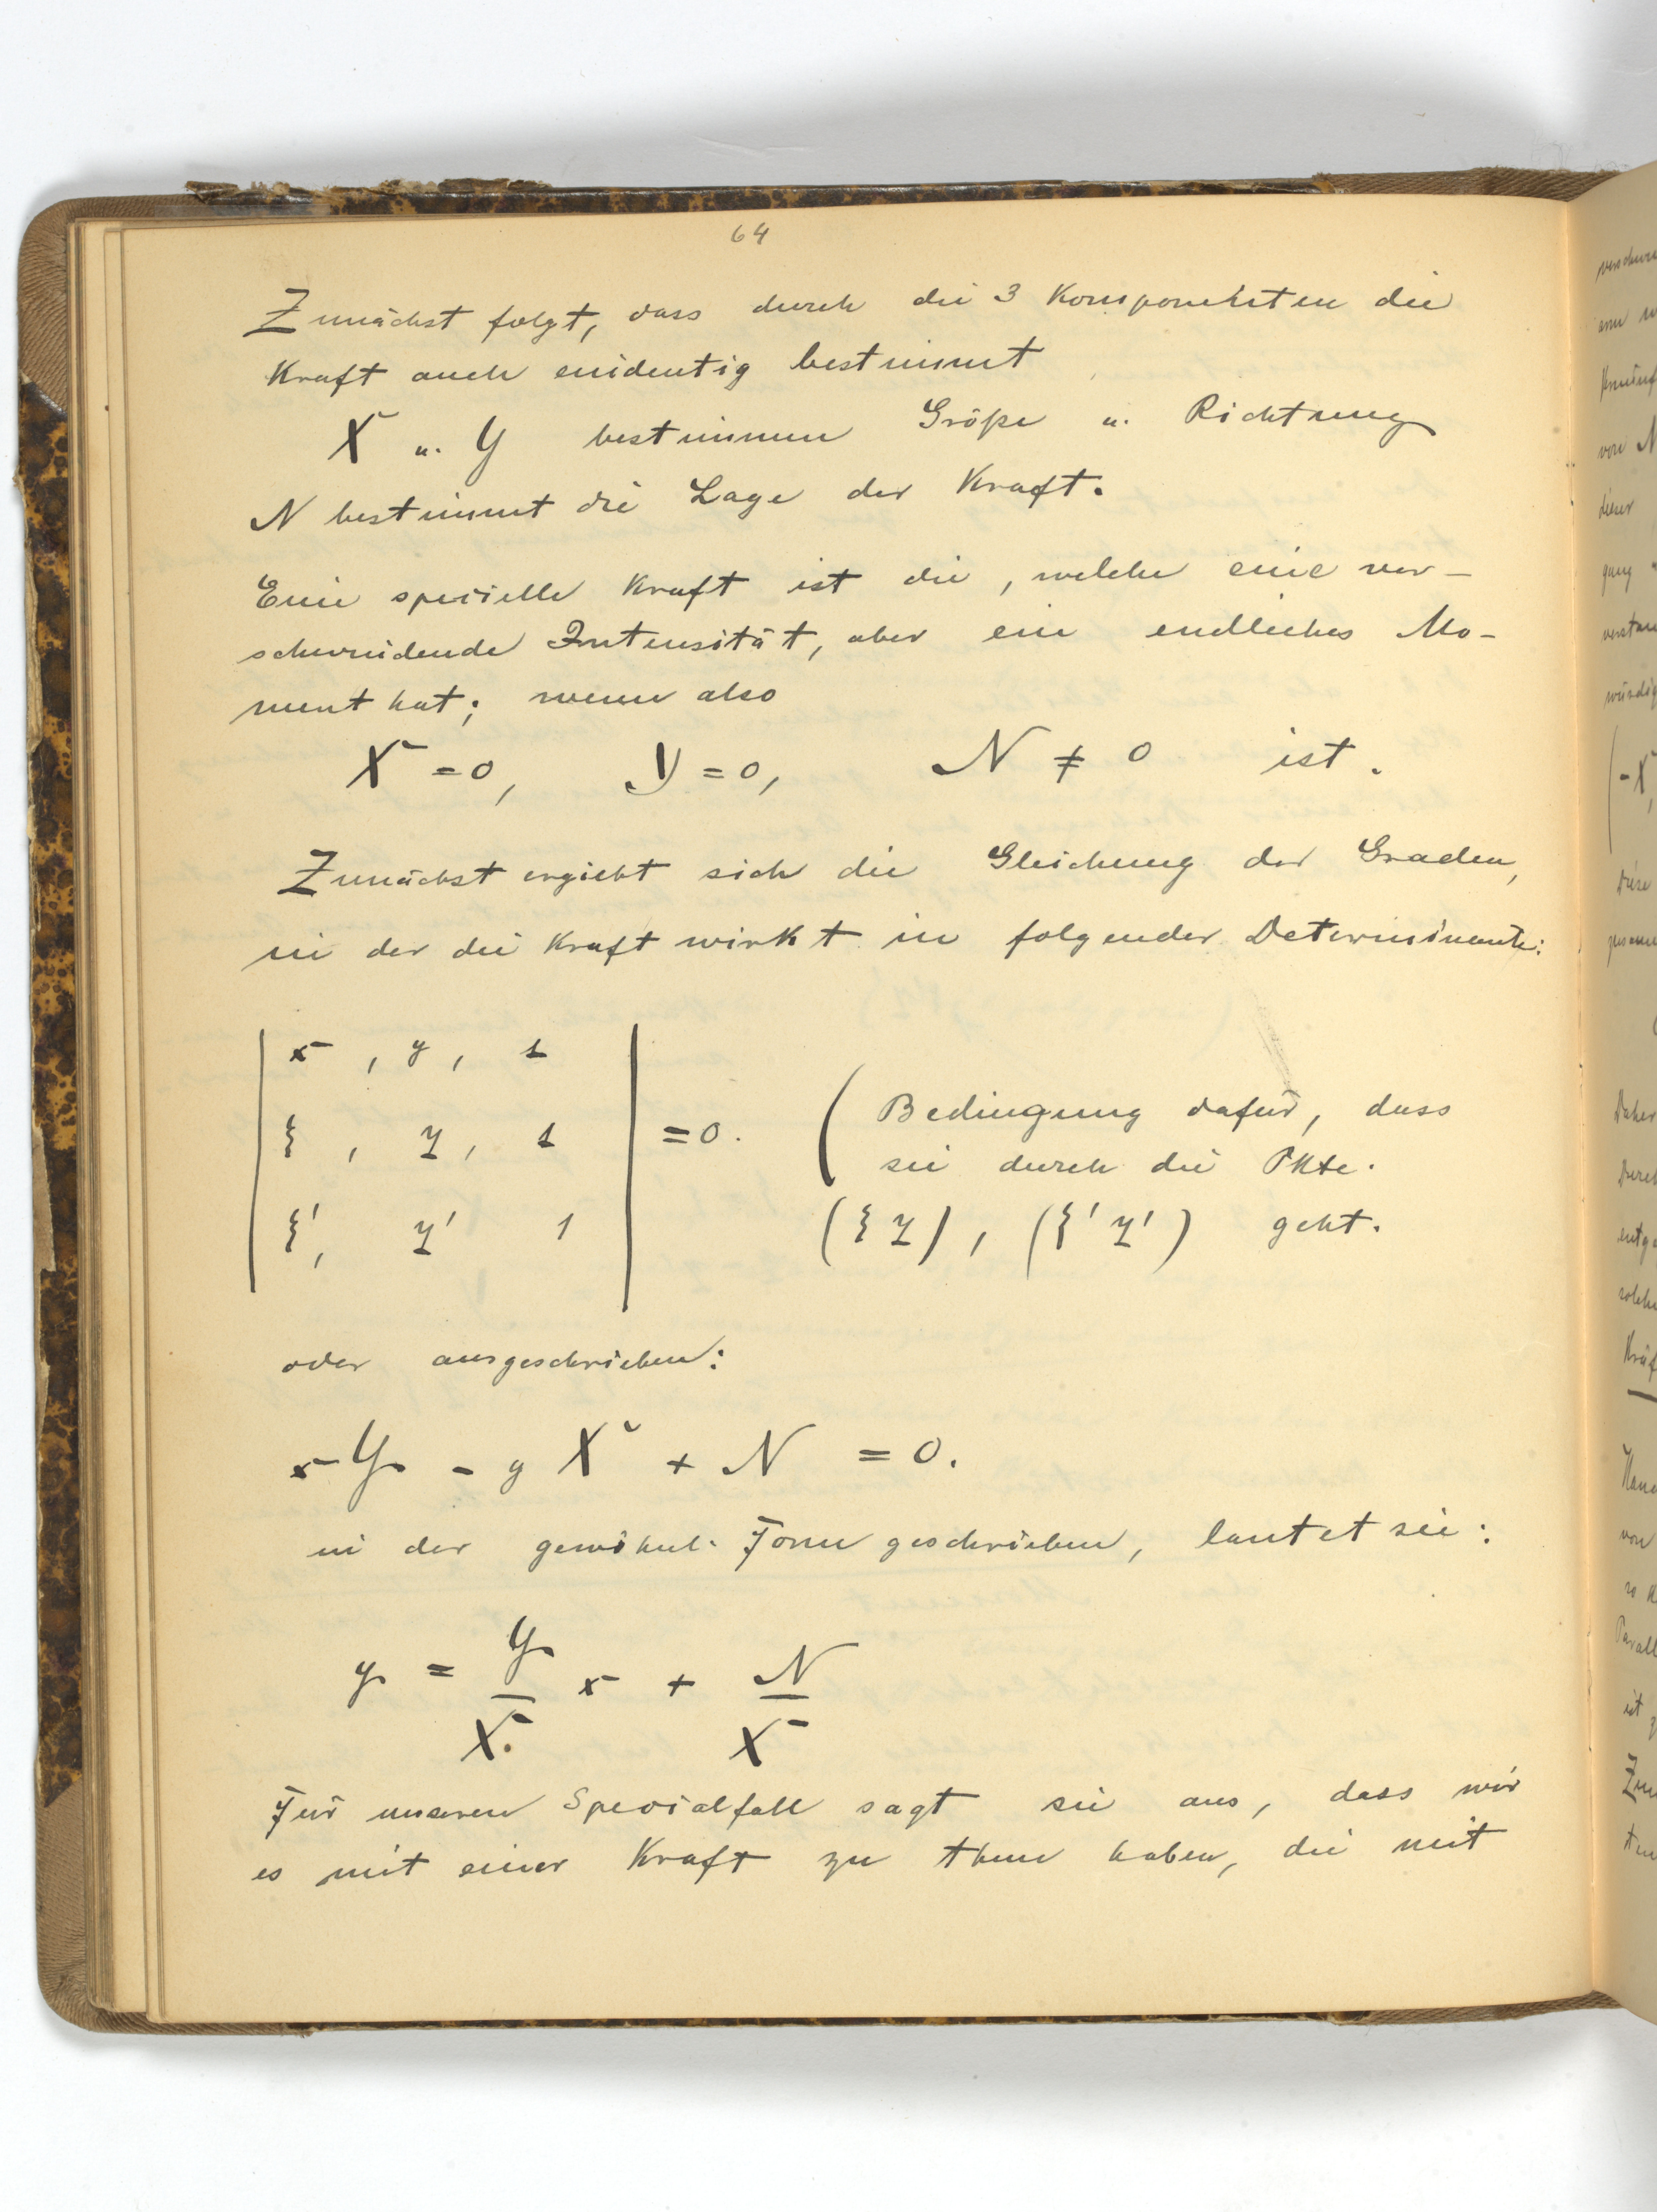 64
Zunächst folgt, dass durch die 3 Komponenten die
Kraft auch eindeutig bestimmt
X u. Y bestimmen Größe u. Richtung
N bestimmt die Lage der Kraft.
Eine specielle Kraft ist die, welche eine ver-
schwindende Intensität, aber ein endliches Mo-
ment hat; wenn also
X = 0, Y = 0, N ≠ 0 ist.
Zunächst ergiebt sich die Gleichung der Graden,
in der die Kraft wirkt in folgender Determinante:
| x , y , 1 |
| ξ , η , 1 | = 0. ( Bedingung dafür, dass
sie durch die Pkte.
| ξ', η' 1 | (ξ η), (ξ' η') geht.
oder ausgeschrieben:
x Y - y X + N = 0.
in der gewöhnl. Form geschrieben, lautet sie:
y = Y/X x + N/X
Für unseren Specialfall sagt sie aus, dass wir
es mit einer Kraft zu thun haben, die mit